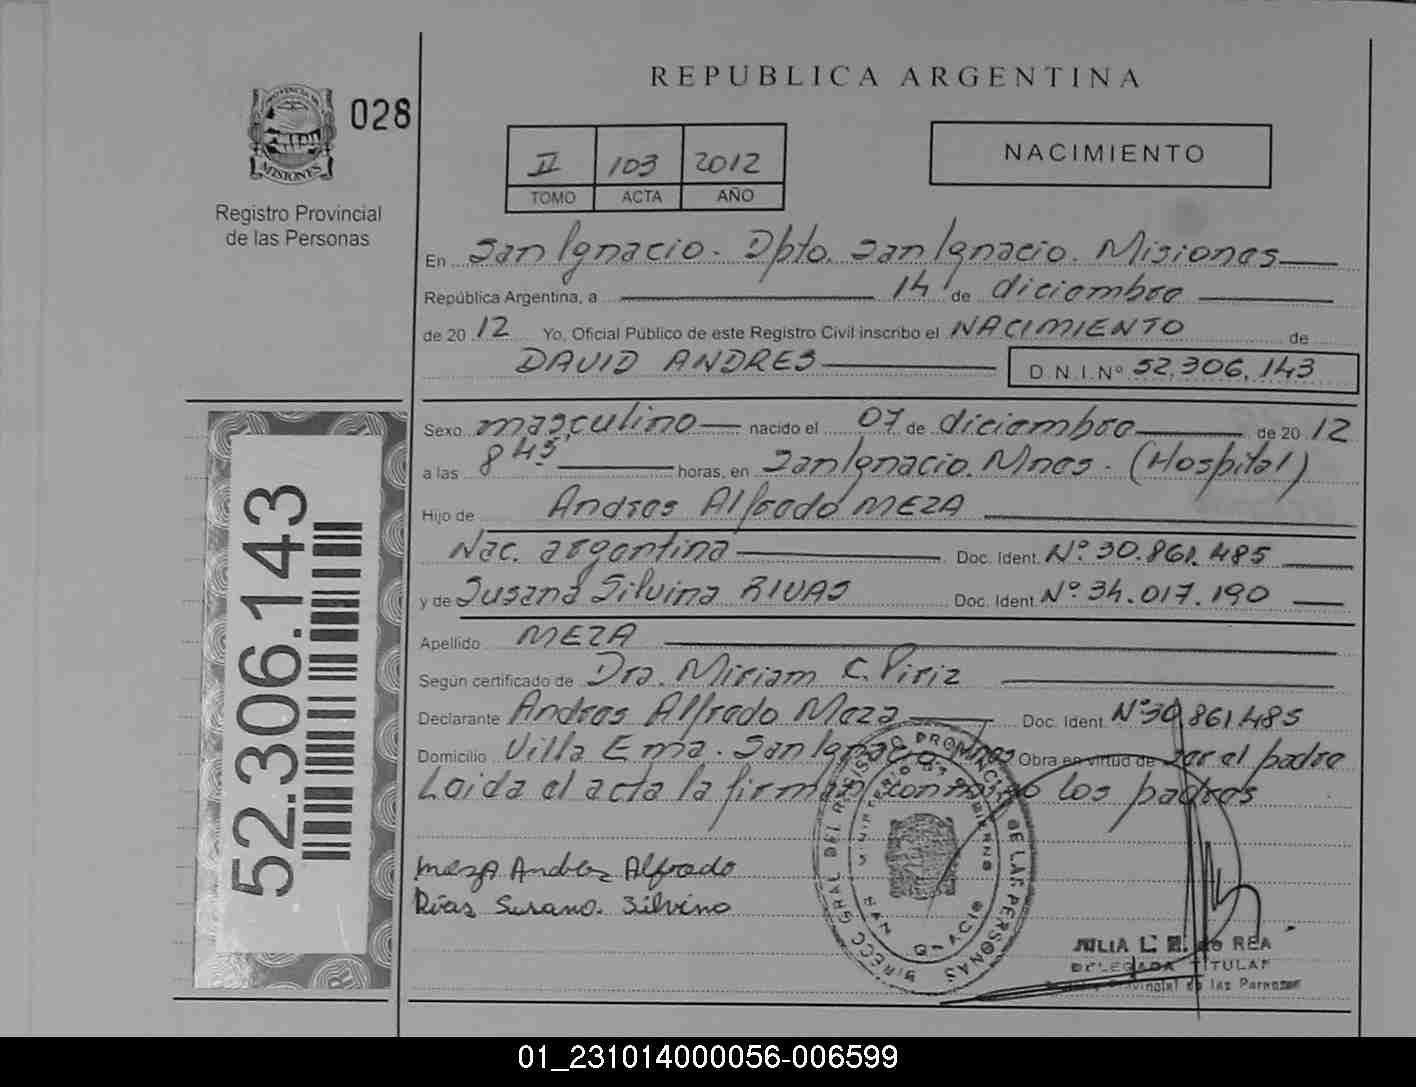 028
MISIONES
Registro Provincial
de las Personas
REPUBLICA ARGENTINA
II 103 2012
TOMO ACTA AÑO
NACIMIENTO
En San Ignacio. Dpto. San Ignacio. Misiones
República Argentina, a 14 de diciembre
de 2012 Yo, Oficial Público de este Registro Civil inscribo el NACIMIENTO de
DAVID ANDRES D.N.I.Nº 52.306.143
Sexo masculino nacido el 07 de diciembre de 2012
a las 8 45 horas, en San Ignacio. Mnes. (Hospital)
Hijo de Andres Alfredo MEZA
Nac. argentina Doc. Ident. Nº 30.861.485
y de Susana Silvina RIVAS Doc. Ident Nº 34.017.190
Apellido MEZA
Según certificado de Dra. Miriam C. Piriz
Declarante Andres Alfredo Meza Doc. Ident. Nº 30861485
Domicilio Villa Ema. San Ignacio Mnes Obra en virtud de ser el padre
Leida el acta la firman conmigo los padres
Meza Andres Alfredo
Rivas Susana. Silvina
52.306.143
DIRECC GRAL DEL REGISTRO PROVINCIAL DE LAS PERSONAS
MINISTERIO DE GOBIERNO
SAN IGNACIO
JULIA L. de REA
DELEGADA TITULAR
Registro Provincial de las Personas
01_231014000056-006599